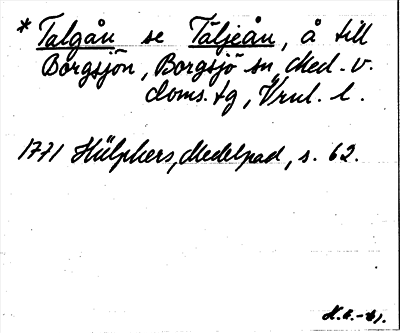 * Talgån se Täljeån, å till
Borgsjön, Borgsjö sn, Med. v.
doms. tg, Vrnl. l.
1771 Hülphers, Medelpad, s. 62.